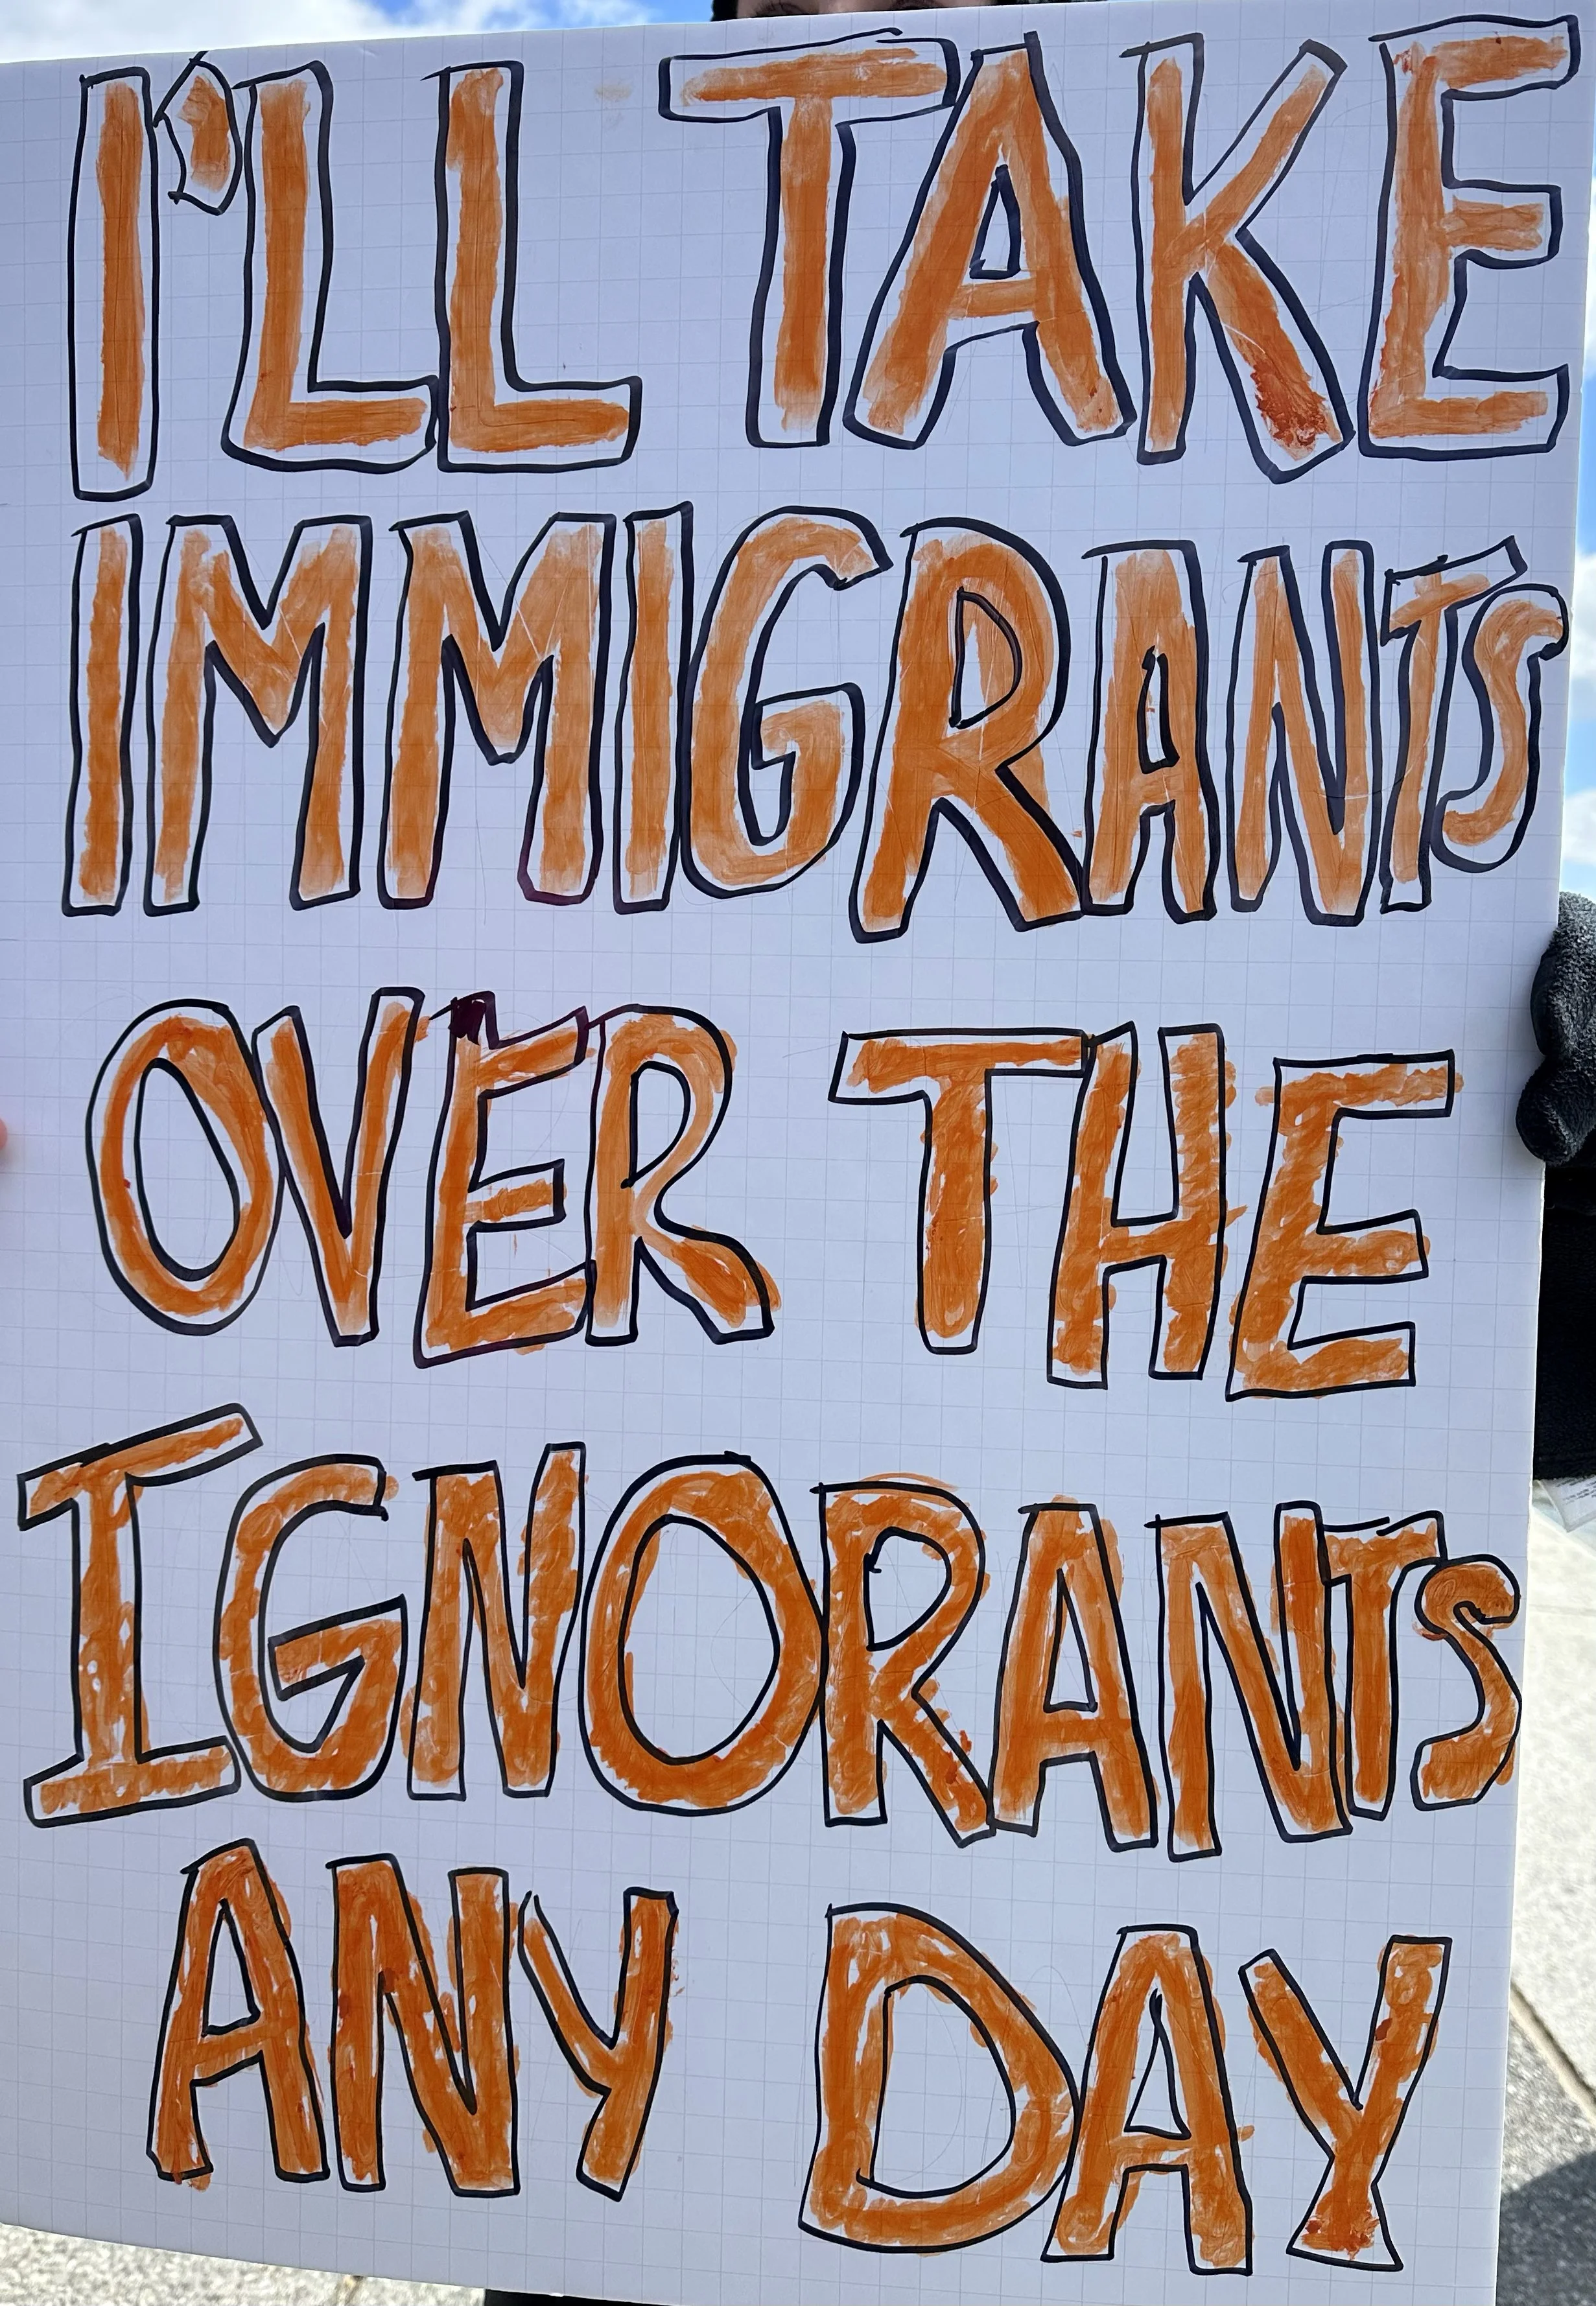 I'LL TAKE
IMMIGRANTS
OVER THE
IGNORANTS
ANY DAY